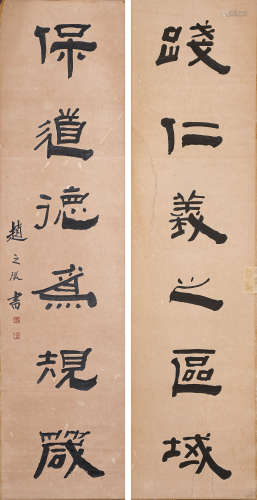 踐仁義之區域
保道德為規箴
趙之琛書